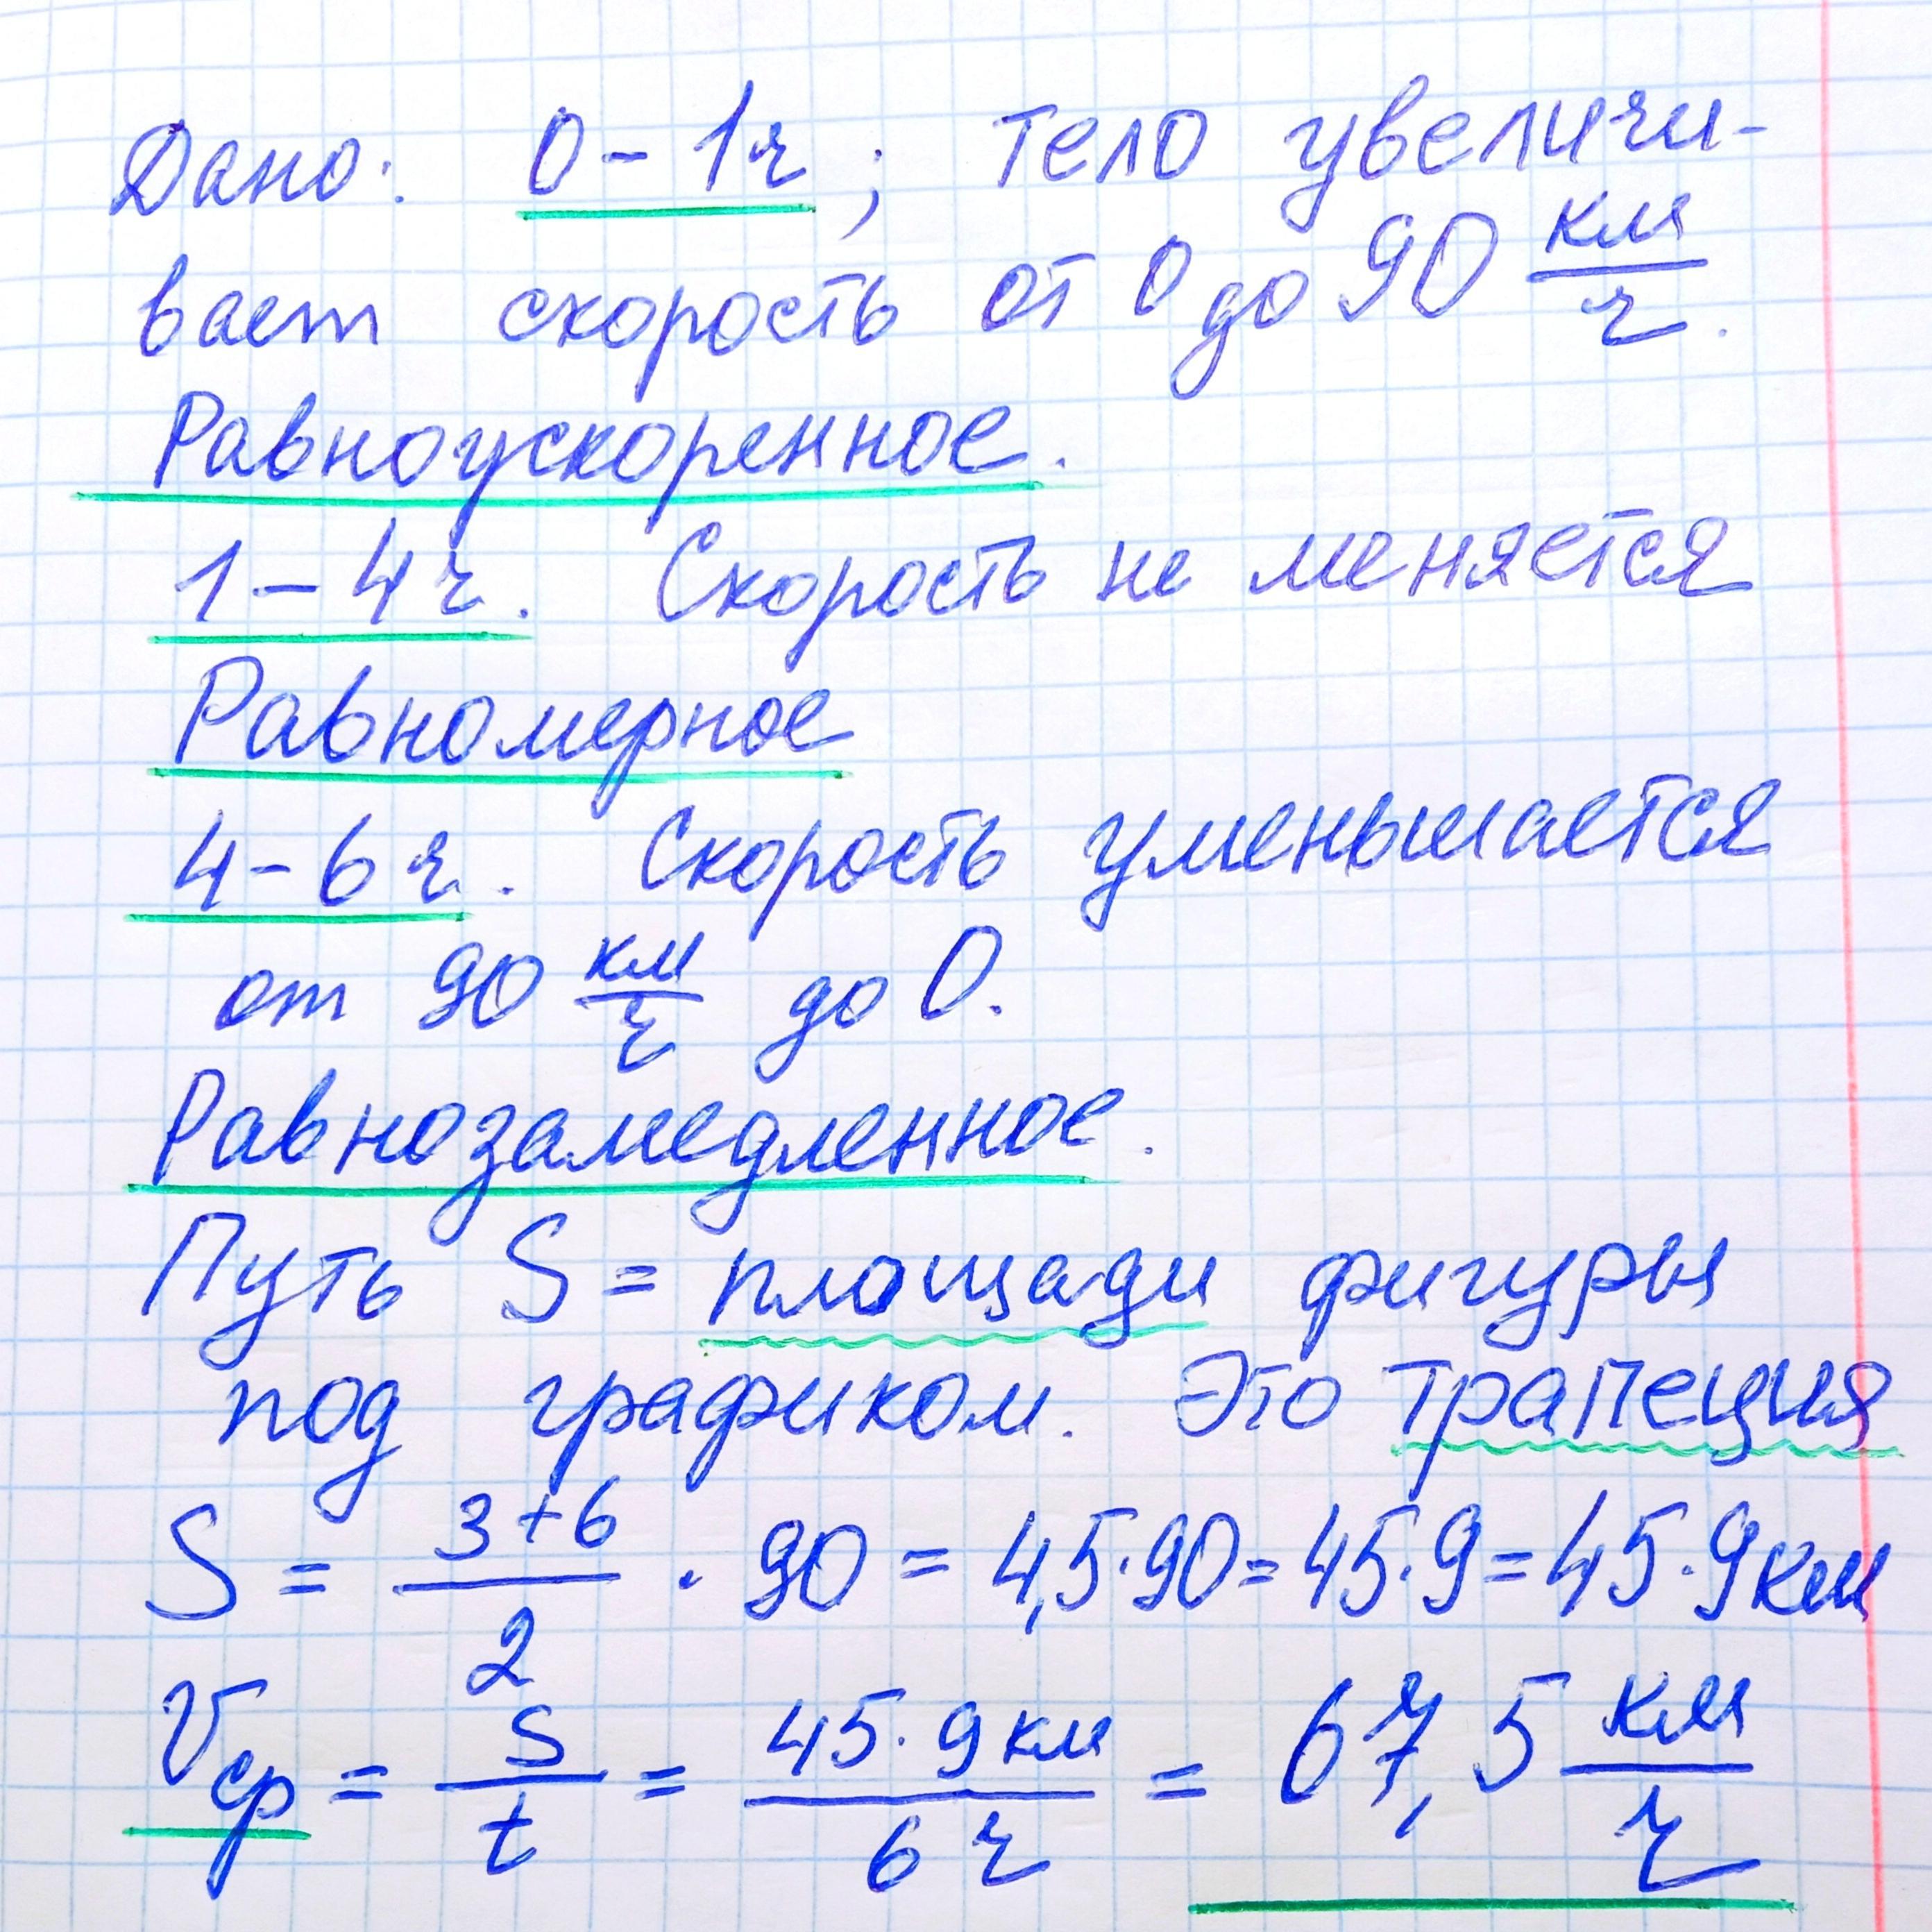 Дано: 0 - 1ч; тело увеличи-
вает скорость от 0 до 90 км/ч.
Равноускоренное.
1 - 4ч. Скорость не меняется
Равномерное
4 - 6ч. Скорость уменьшается
от 90 км/ч до 0.
Равнозамедленное.
Путь S = площади фигуры
под графиком. Это трапеция
S = (3+6)/2 · 90 = 4,5·90 = 45·9 = 45·9км
Vср = S/t = 45·9км/6ч = 67,5 км/ч